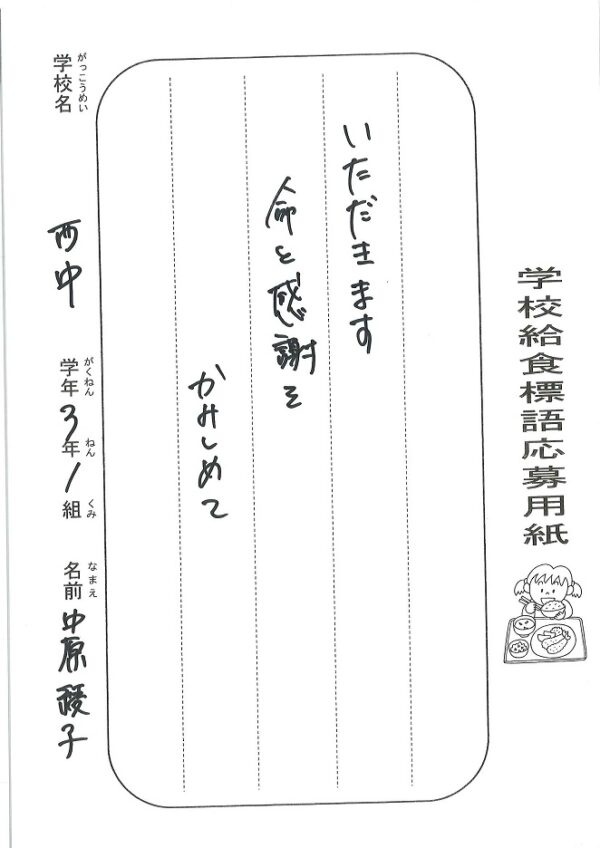 学校給食標語応募用紙
いただきます
命と感謝を
かみしめて
学校名 西中 学年3年1組 名前 中原 綾子
がっこうめい がくねん ねん くみ なまえ